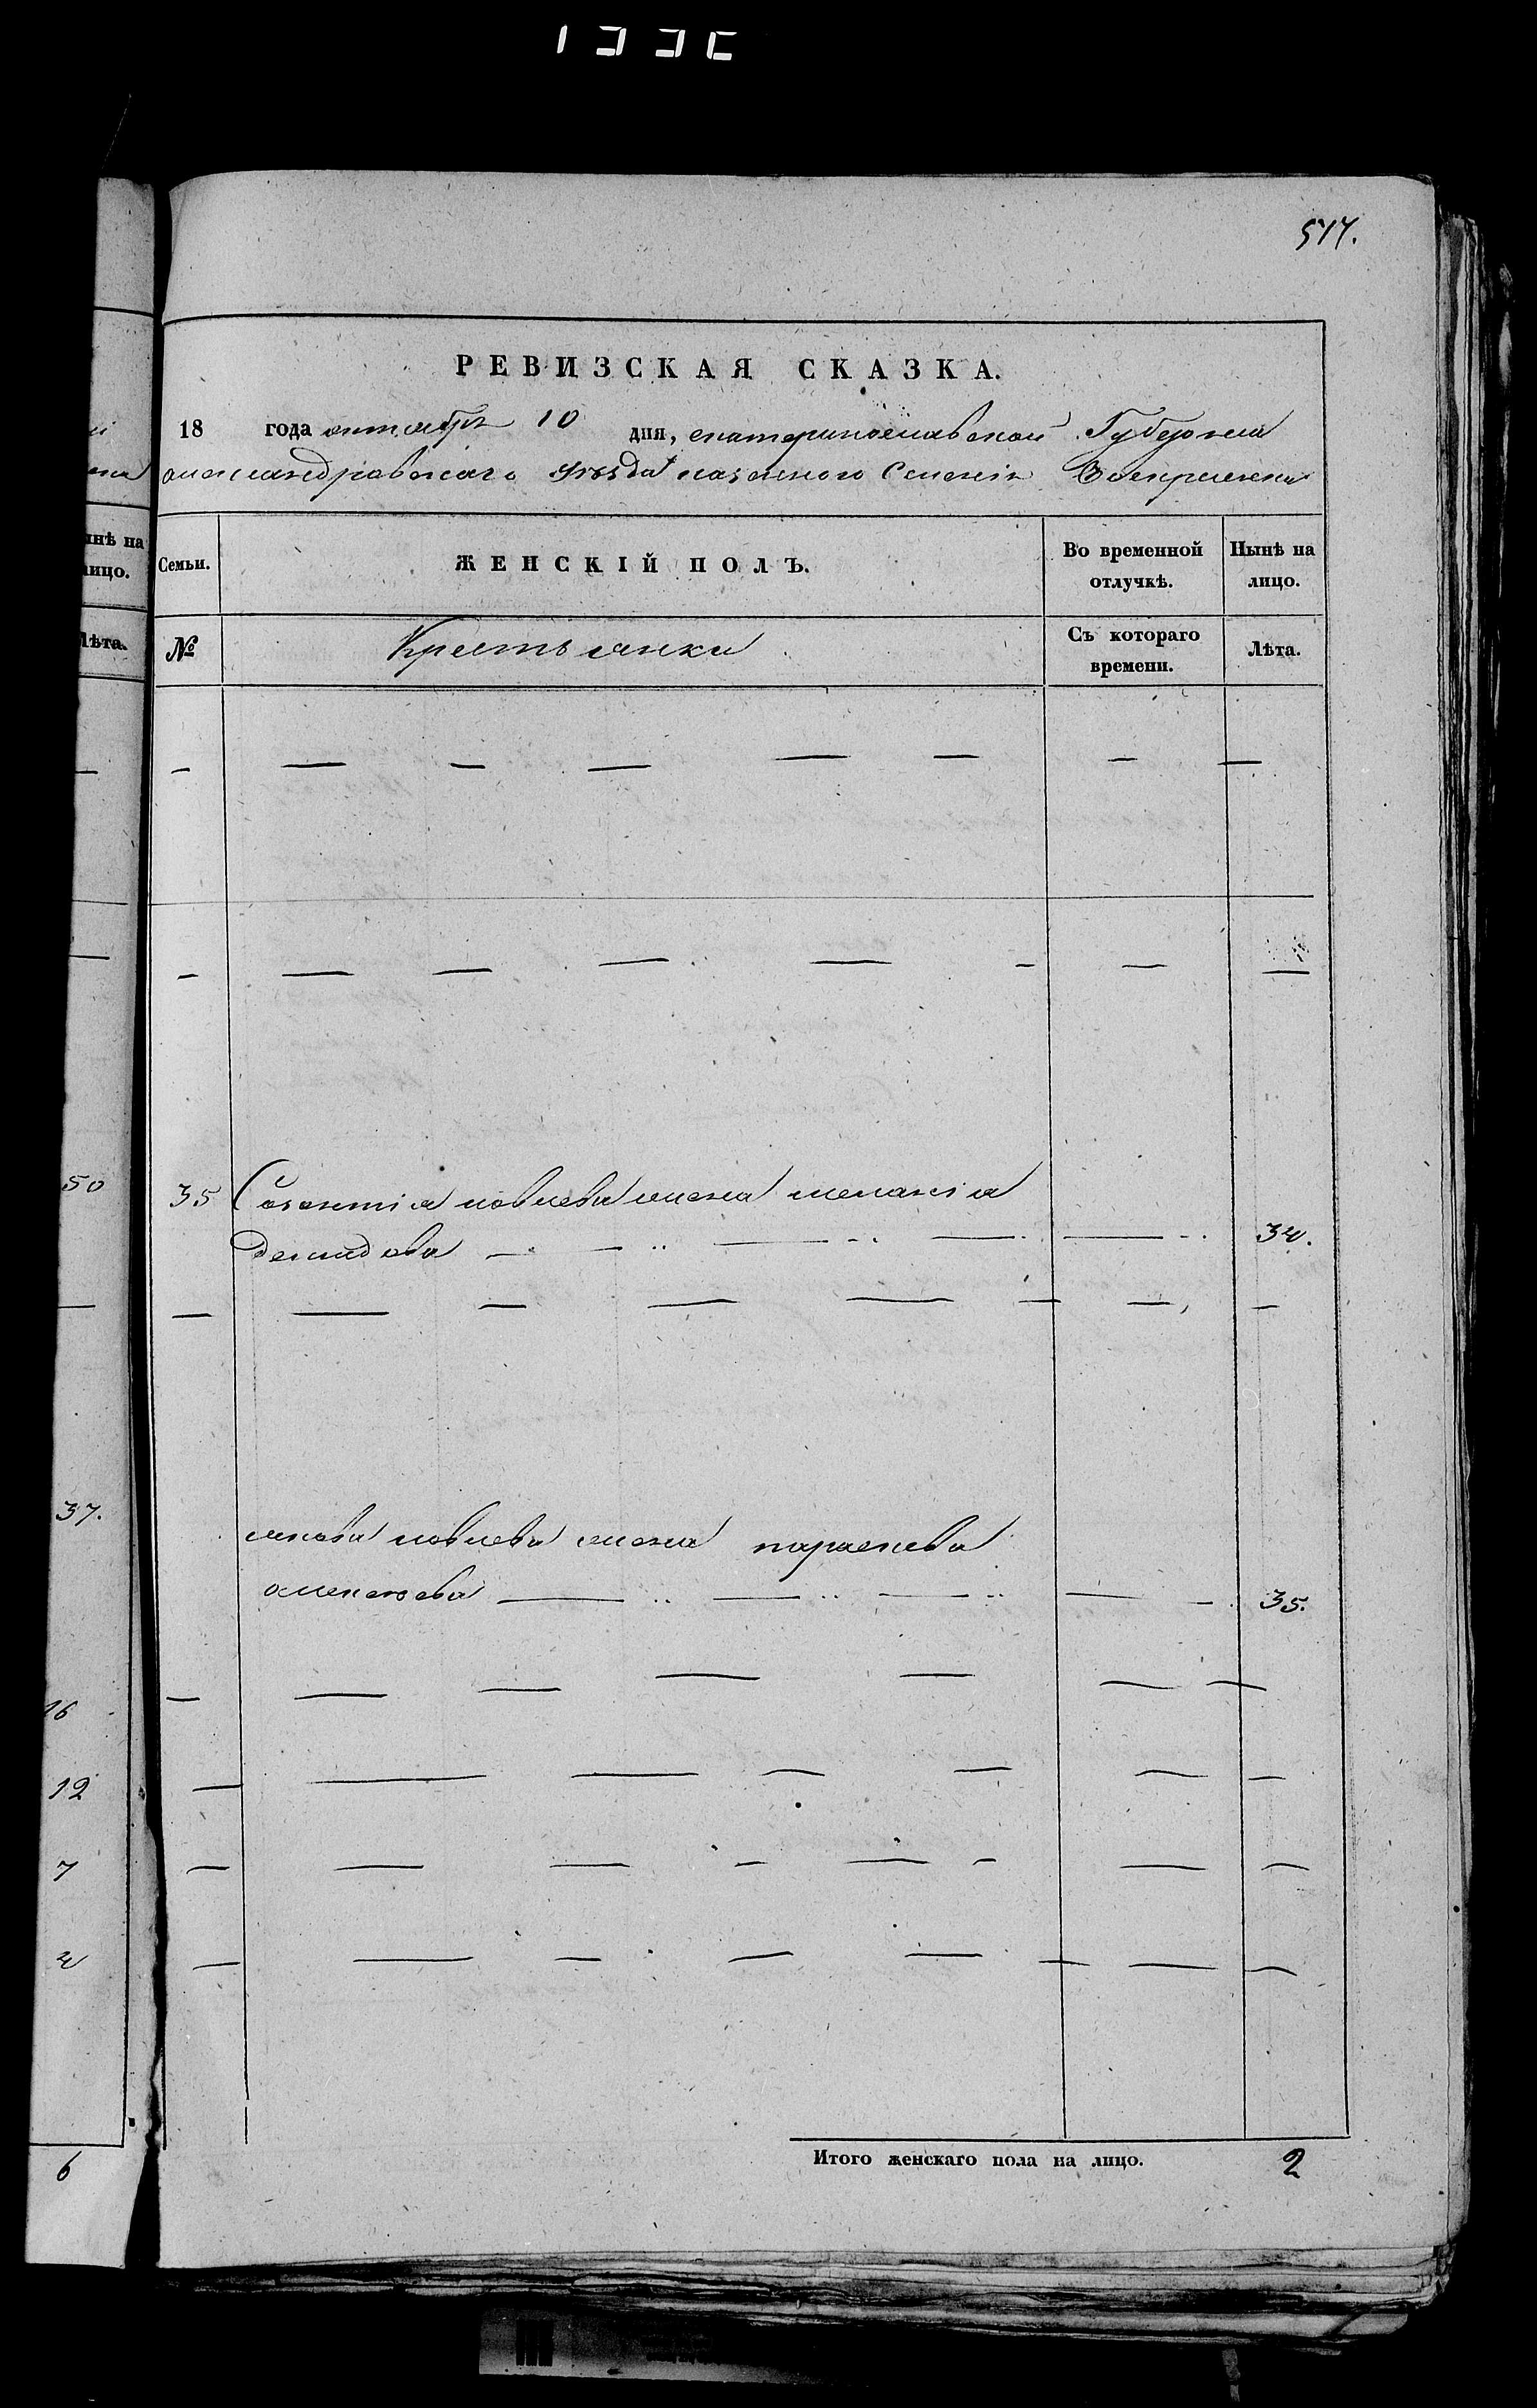 517.
РЕВИЗСКАЯ СКАЗКА.
18 года октября 10 дня, екатеринославской Губернии
александравскаго уезда казенного Селения Воскресенки
Семьи. ЖЕНСКІЙ ПОЛЪ. Во временной отлучкѣ. Нынѣ на лицо.
№ Крестьянки Съ котораго времени. Лѣта.
35 павлева жена меланхия
демидова 34.
павлева жена параскева
алексеева 35.
Итого женскаго пола на лицо. 2
нѣ на
лицо.
Лѣта.
50
37.
16
12
7
6